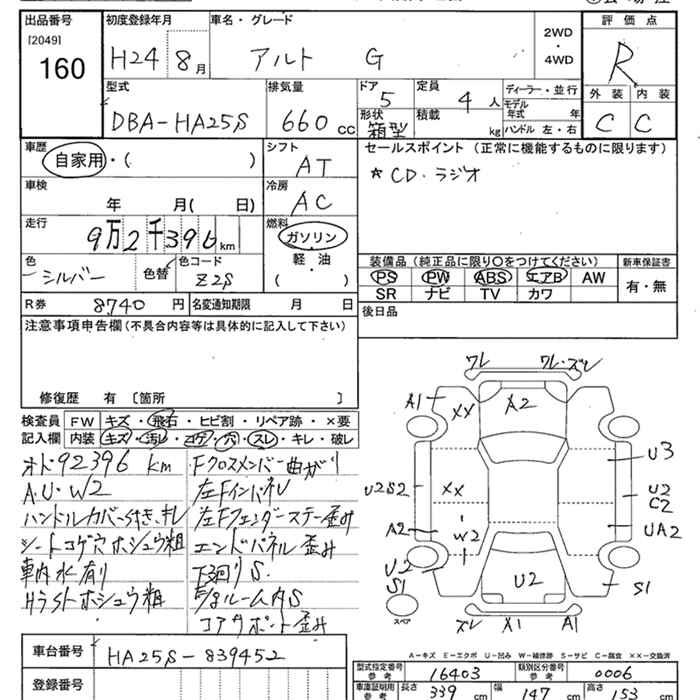 出品番号 初度登録年月 車名・グレード 2WD・4WD 評価点
[2049]
160 H24 8月 アルト G R
型式 排気量 ドア 5 定員 4人 ディーラー・並行 外装 内装
DBA-HA25S 660cc 形状 箱型 積載 kg モデル年式 年式 ハンドル 左・右 C C
車歴 自家用・( ) シフト AT セールスポイント(正常に機能するものに限ります)
☆ CD・ラジオ
車検 年 月( 日) 冷房 AC
走行 9万2千396km 燃料 ガソリン
軽油・( )
色 シルバー 色替 色コード Z2S
装備品(純正品に限り〇をつけてください) 新車保証書
PS PW ABS エアB AW 有・無
SR ナビ TV カワ
R券 8740円 名変通知期限 月 日 後日品
注意事項申告欄(不具合内容等は具体的に記入して下さい)
修復歴 有〔箇所 〕
検査員記入欄 FW キズ・飛石・ヒビ割・リペア跡・×要
内装 キズ・汚レ・コゲ・穴・スレ・キレ・破レ
オド92396km
A.U・W2
ハンドルカバー、Sキキ、キレ
シートコゲ穴ホシュウ粗
車内水有り
ホシュウ粗
Fクロスメンバー曲がり
左Fインパネル
左Fフェンダーステー歪み
エンドパネル歪み
下廻りS
ルーム内S
コアサポート歪み
ワレ ワレ・ズレ
A1 XX A2
U3
U2S2 XX U2
C2
A2 W2 UA2
U2
S1 U2 S1
スペア ズレ X1 A1
A-キズ E-エクボ U-凹み W-補修跡 S-サビ C-腐食 ××-交換済
車台番号 HA25S-839452
登録番号
型式指定番号 参考 16403 類別区分番号 参考 0006
車庫証明用 参考 長さ 339cm 幅 147cm 高さ 153cm